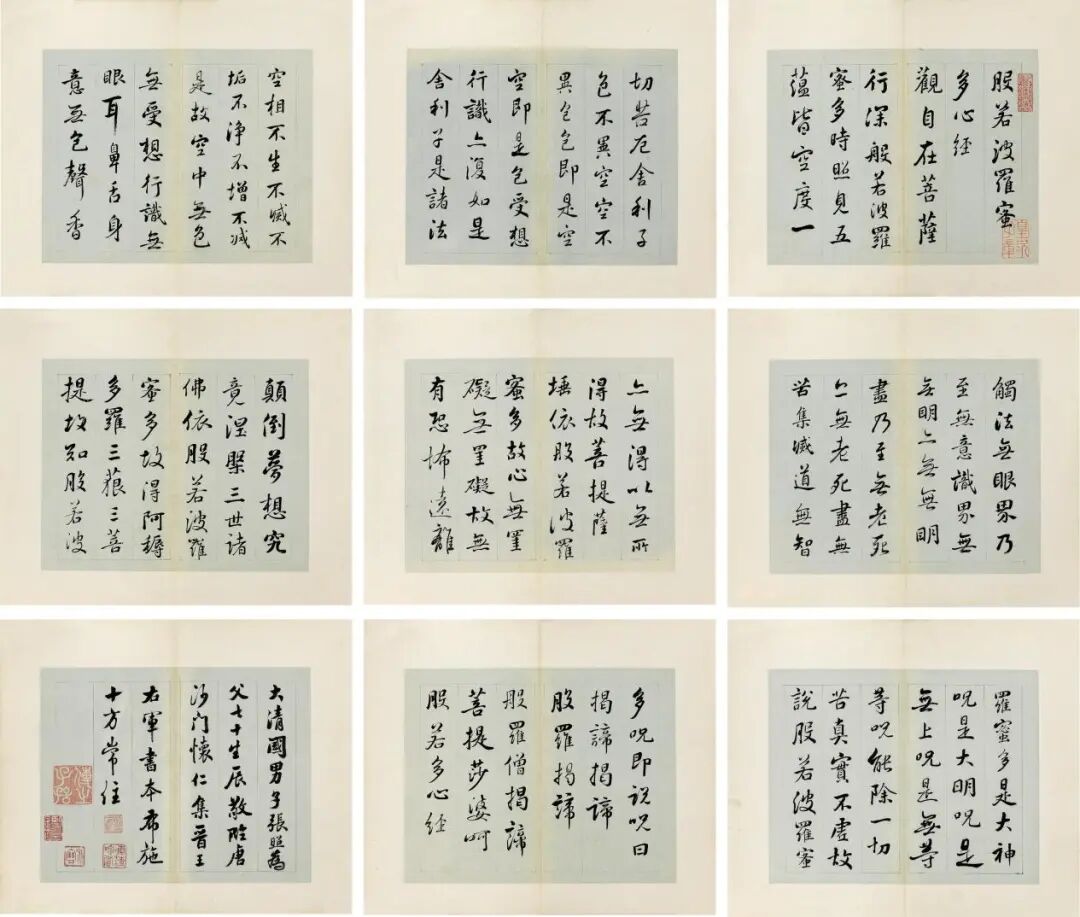 般若波羅蜜
多心經
觀自在菩薩
行深般若波羅
蜜多時照見五
蘊皆空度一
切苦厄舍利子
色不異空空不
異色色即是空
空即是色受想
行識亦復如是
舍利子是諸法
空相不生不滅不
垢不淨不增不減
是故空中無色
無受想行識無
眼耳鼻舌身
意無色聲香
觸法無眼界乃
至無意識界無
無明亦無無明
盡乃至無老死
亦無老死盡無
苦集滅道無智
亦無得以無所
得故菩提薩
埵依般若波羅
蜜多故心無罣
礙無罣礙故無
有恐怖遠離
顛倒夢想究
竟涅槃三世諸
佛依般若波羅
蜜多故得阿耨
多羅三藐三菩
提故知般若波
羅蜜多是大神
呪是大明呪是
無上呪是無等
等呪能除一切
苦真實不虛故
說般若波羅蜜
多呪即說呪曰
揭諦揭諦
般羅揭諦
般羅僧揭諦
菩提莎婆呵
般若多心經
大清國男子張照為
父七十生辰敬臨唐
沙門懷仁集晉王
右軍書本布施
十方常住